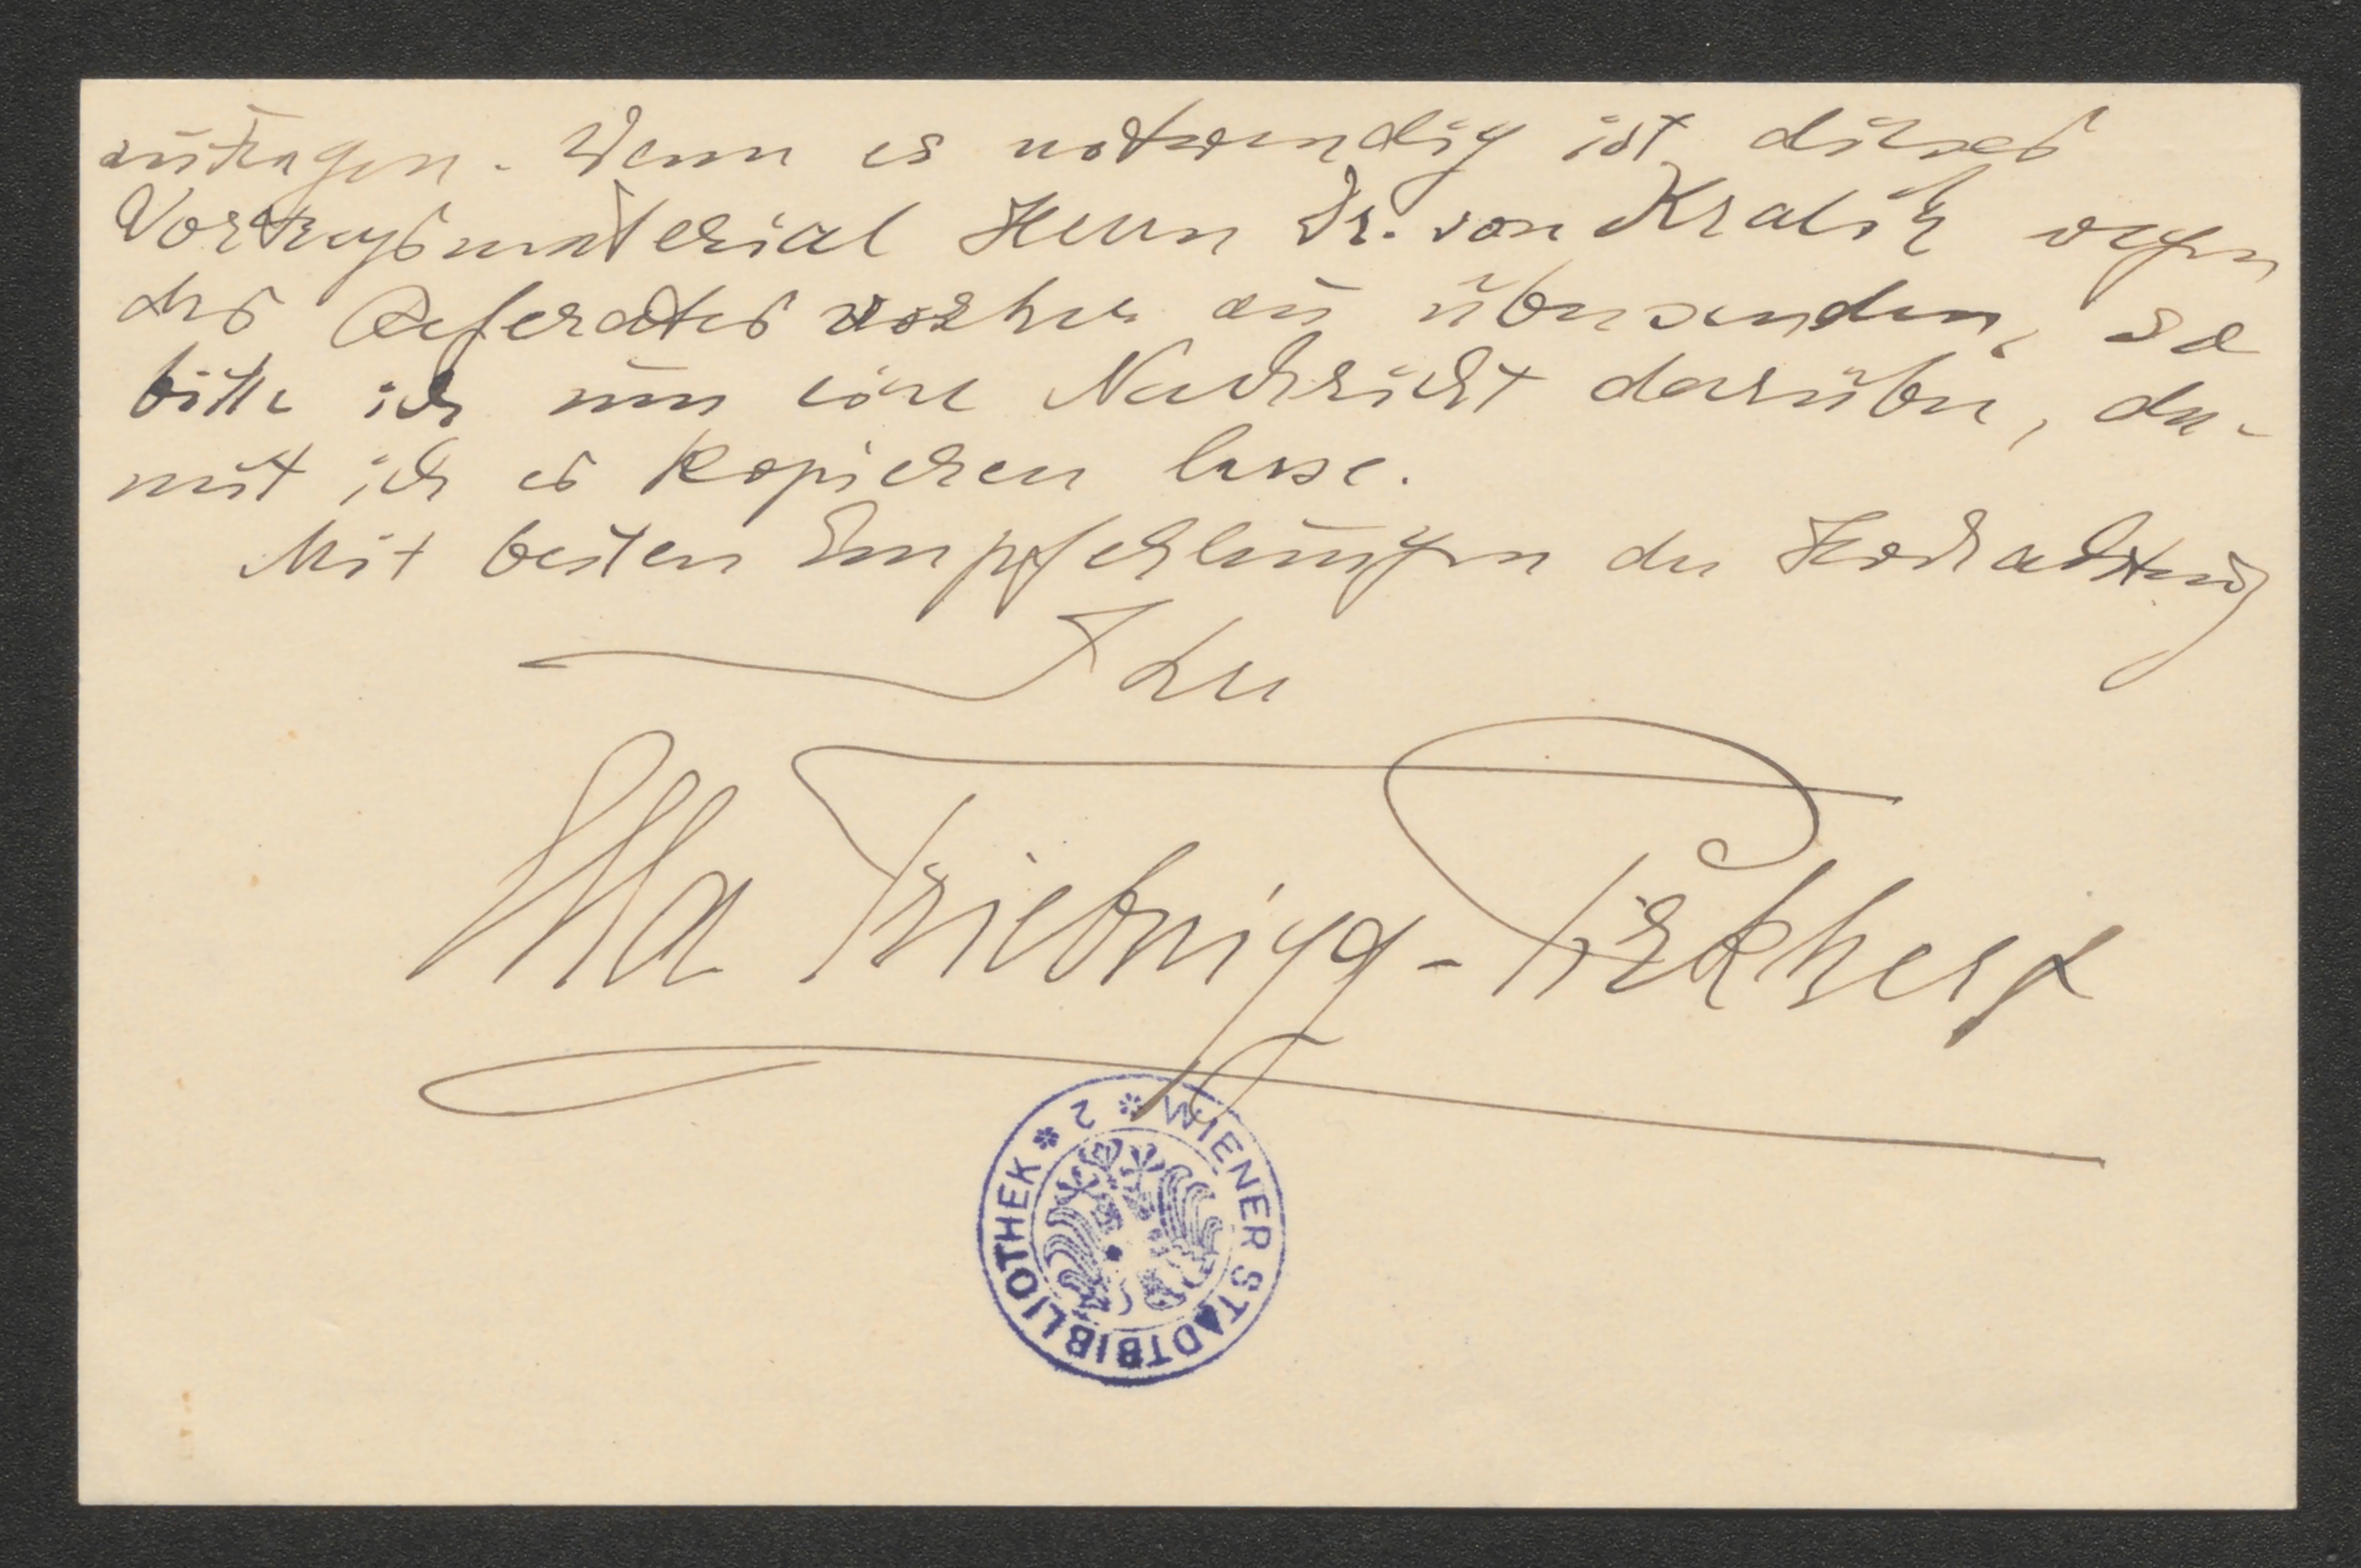 zutragen. Wenn es notwendig ist dieses
Vortragsmaterial Herrn Dr. von Kralik wegen
des Referates vorher zu übersenden, so
bitte ich um eine Nachricht darüber, da-
mit ich es kopieren lasse.
Mit besten Empfehlungen der Hochachtung
Ihre
Ella Triebnigg-Pirkhert
WIENER STADTBIBLIOTHEK * 2 *